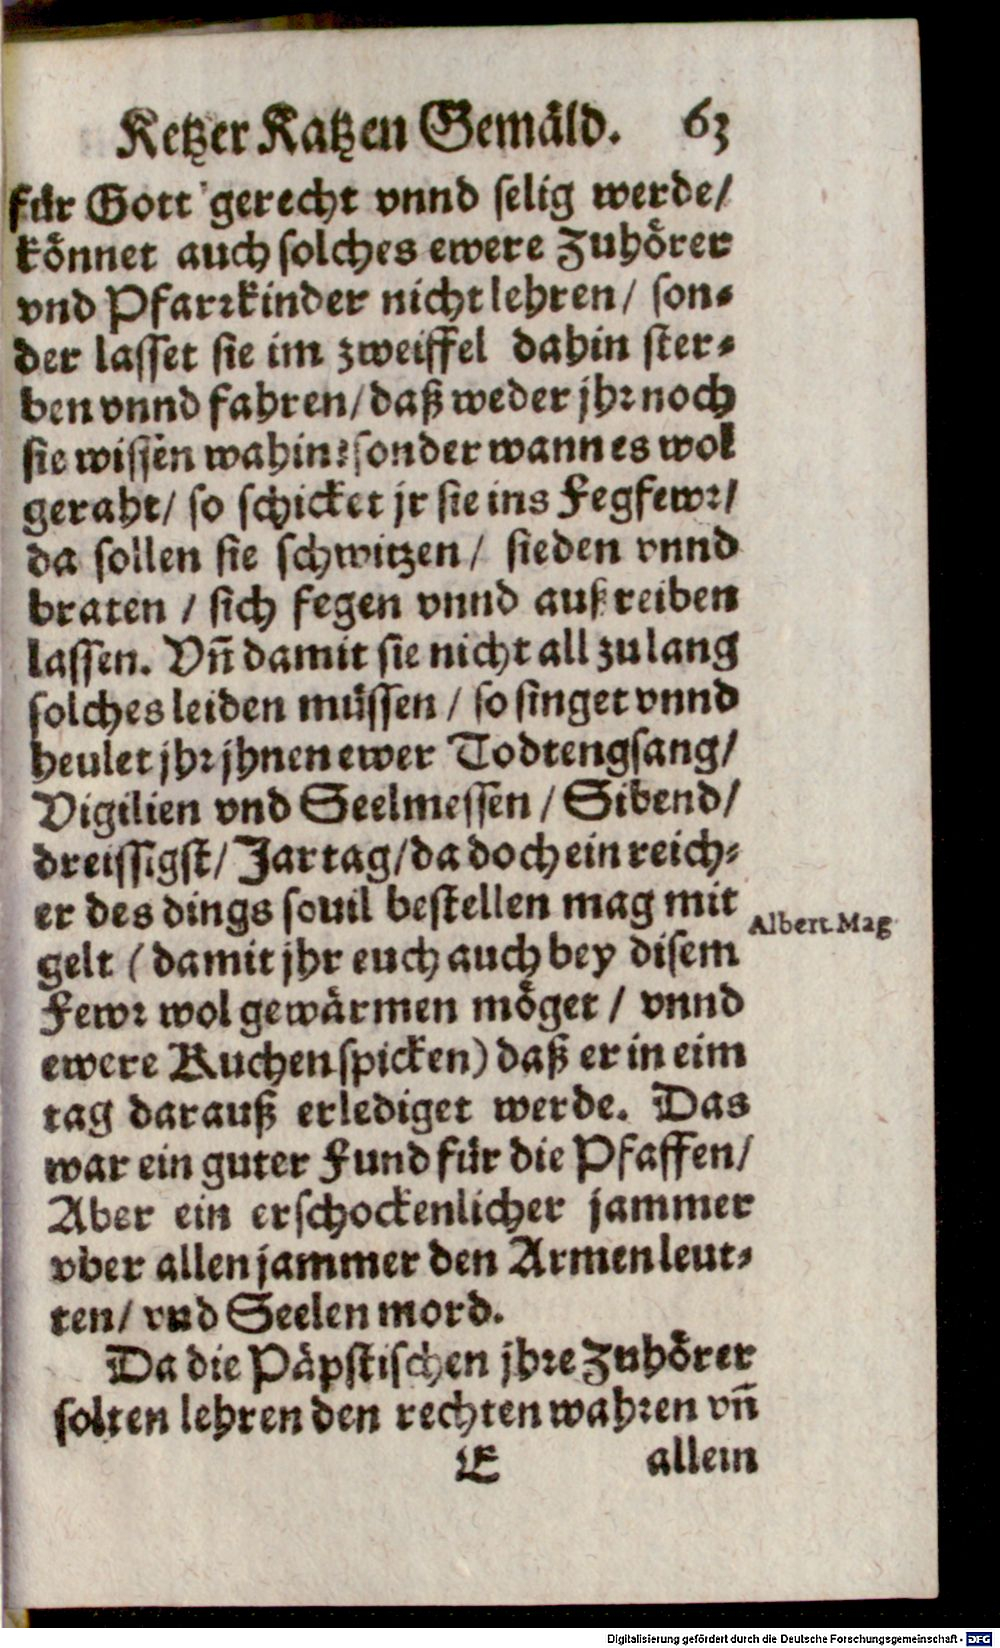 Ketzer Katzen Gemäld. 63
für Gott gerecht vnnd selig werde/
könnet auch solches ewere Zuhörer
vnd Pfarrkinder nicht lehren/ son-
der lasset sie im zweiffel dahin ster-
ben vnnd fahren/ daß weder jhr noch
sie wissen wahin: sonder wann es wol
geraht/ so schicket jr sie ins Fegfewr/
da sollen sie schwitzen/ sieden vnnd
braten / sich fegen vnnd außreiben
lassen. Vñ damit sie nicht all zu lang
solches leiden müssen / so singet vnnd
heulet jhr jhnen ewer Todtengsang/
Vigilien vnd Seelmessen / Sibend/
dreissigst/ Jartag/ da doch ein reich-
er des dings souil bestellen mag mit
Albert. Mag
gelt ( damit jhr euch auch bey disem
Fewr wol gewärmen möget / vnnd
ewere Kuchen spicken) daß er in eim
tag darauß erlediget werde. Das
war ein guter Fund für die Pfaffen/
Aber ein erschockenlicher jammer
vber allen jammer den Armen leut-
ten/ vnd Seelen mord.
Da die Päpstischen jhre Zuhörer
solten lehren den rechten wahren vñ
E allein
Digitalisierung gefördert durch die Deutsche Forschungsgemeinschaft - DFG